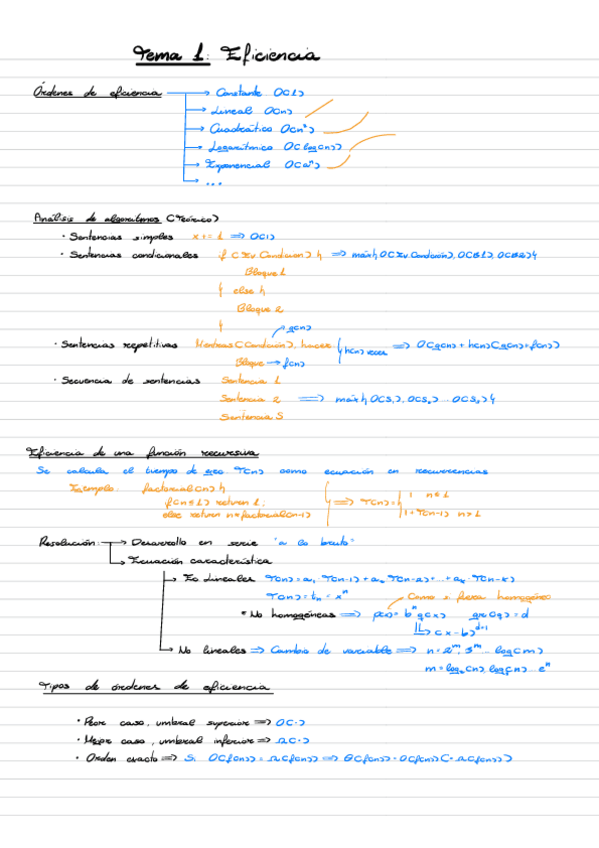 Tema 1: Eficiencia
Órdenes de eficiencia → Constante O(1)
→ Lineal O(n)
→ Cuadrático O(n²)
→ Logarítmico O(log(n))
→ Exponencial O(aⁿ)
→ ...
Análisis de algoritmos (Teórico)
· Sentencias simples x += 1 ⇒ O(1)
· Sentencias condicionales if (Ev. Condicion) { ⇒ máx{O(Ev. Condición), O(B1), O(B2)}
Bloque 1
} else {
Bloque 2
}
g(n)
· Sentencias repetitivas Mientras (Condición), hacer } h(n) veces ⇒ O(g(n) + h(n)(g(n)+f(n)))
Bloque → f(n)
· Secuencia de sentencias Sentencia 1
Sentencia 2 ⇒ máx{O(S₁), O(S₂) ... O(Sₛ)}
Sentencia S
Eficiencia de una función recursiva
Se calcula el tiempo de T(n) como ecuación en recurrencias
Ejemplo: factorial(n) {
if (n≤1) return 1; ⇒ T(n) = { 1 n≤1
else return n*factorial(n-1) 1+T(n-1) n>1
Resolución: → Desarrollo en serie "a lo bruto"
→ Ecuación característica
→ Ec lineales T(n) = a₁·T(n-1) + a₂·T(n-2) + ... + aₖ·T(n-k)
T(n) = tₙ = xⁿ Como si fuera homogénea
* No homogéneas ⇒ p(x) = bⁿq(x) gr(q) = d
(x-b)ᵈ⁺¹
→ No lineales ⇒ Cambio de variable ⇒ n = 2ᵐ, 3ᵐ... log(m)
m = log₂(n), log(n) eⁿ
Tipos de órdenes de eficiencia
· Peor caso, umbral superior ⇒ O(·)
· Mejor caso, umbral inferior ⇒ Ω(·)
· Orden exacto ⇒ Si O(f(n)) = Ω(f(n)) ⇒ Θ(f(n)) = O(f(n)) (= Ω(f(n)))